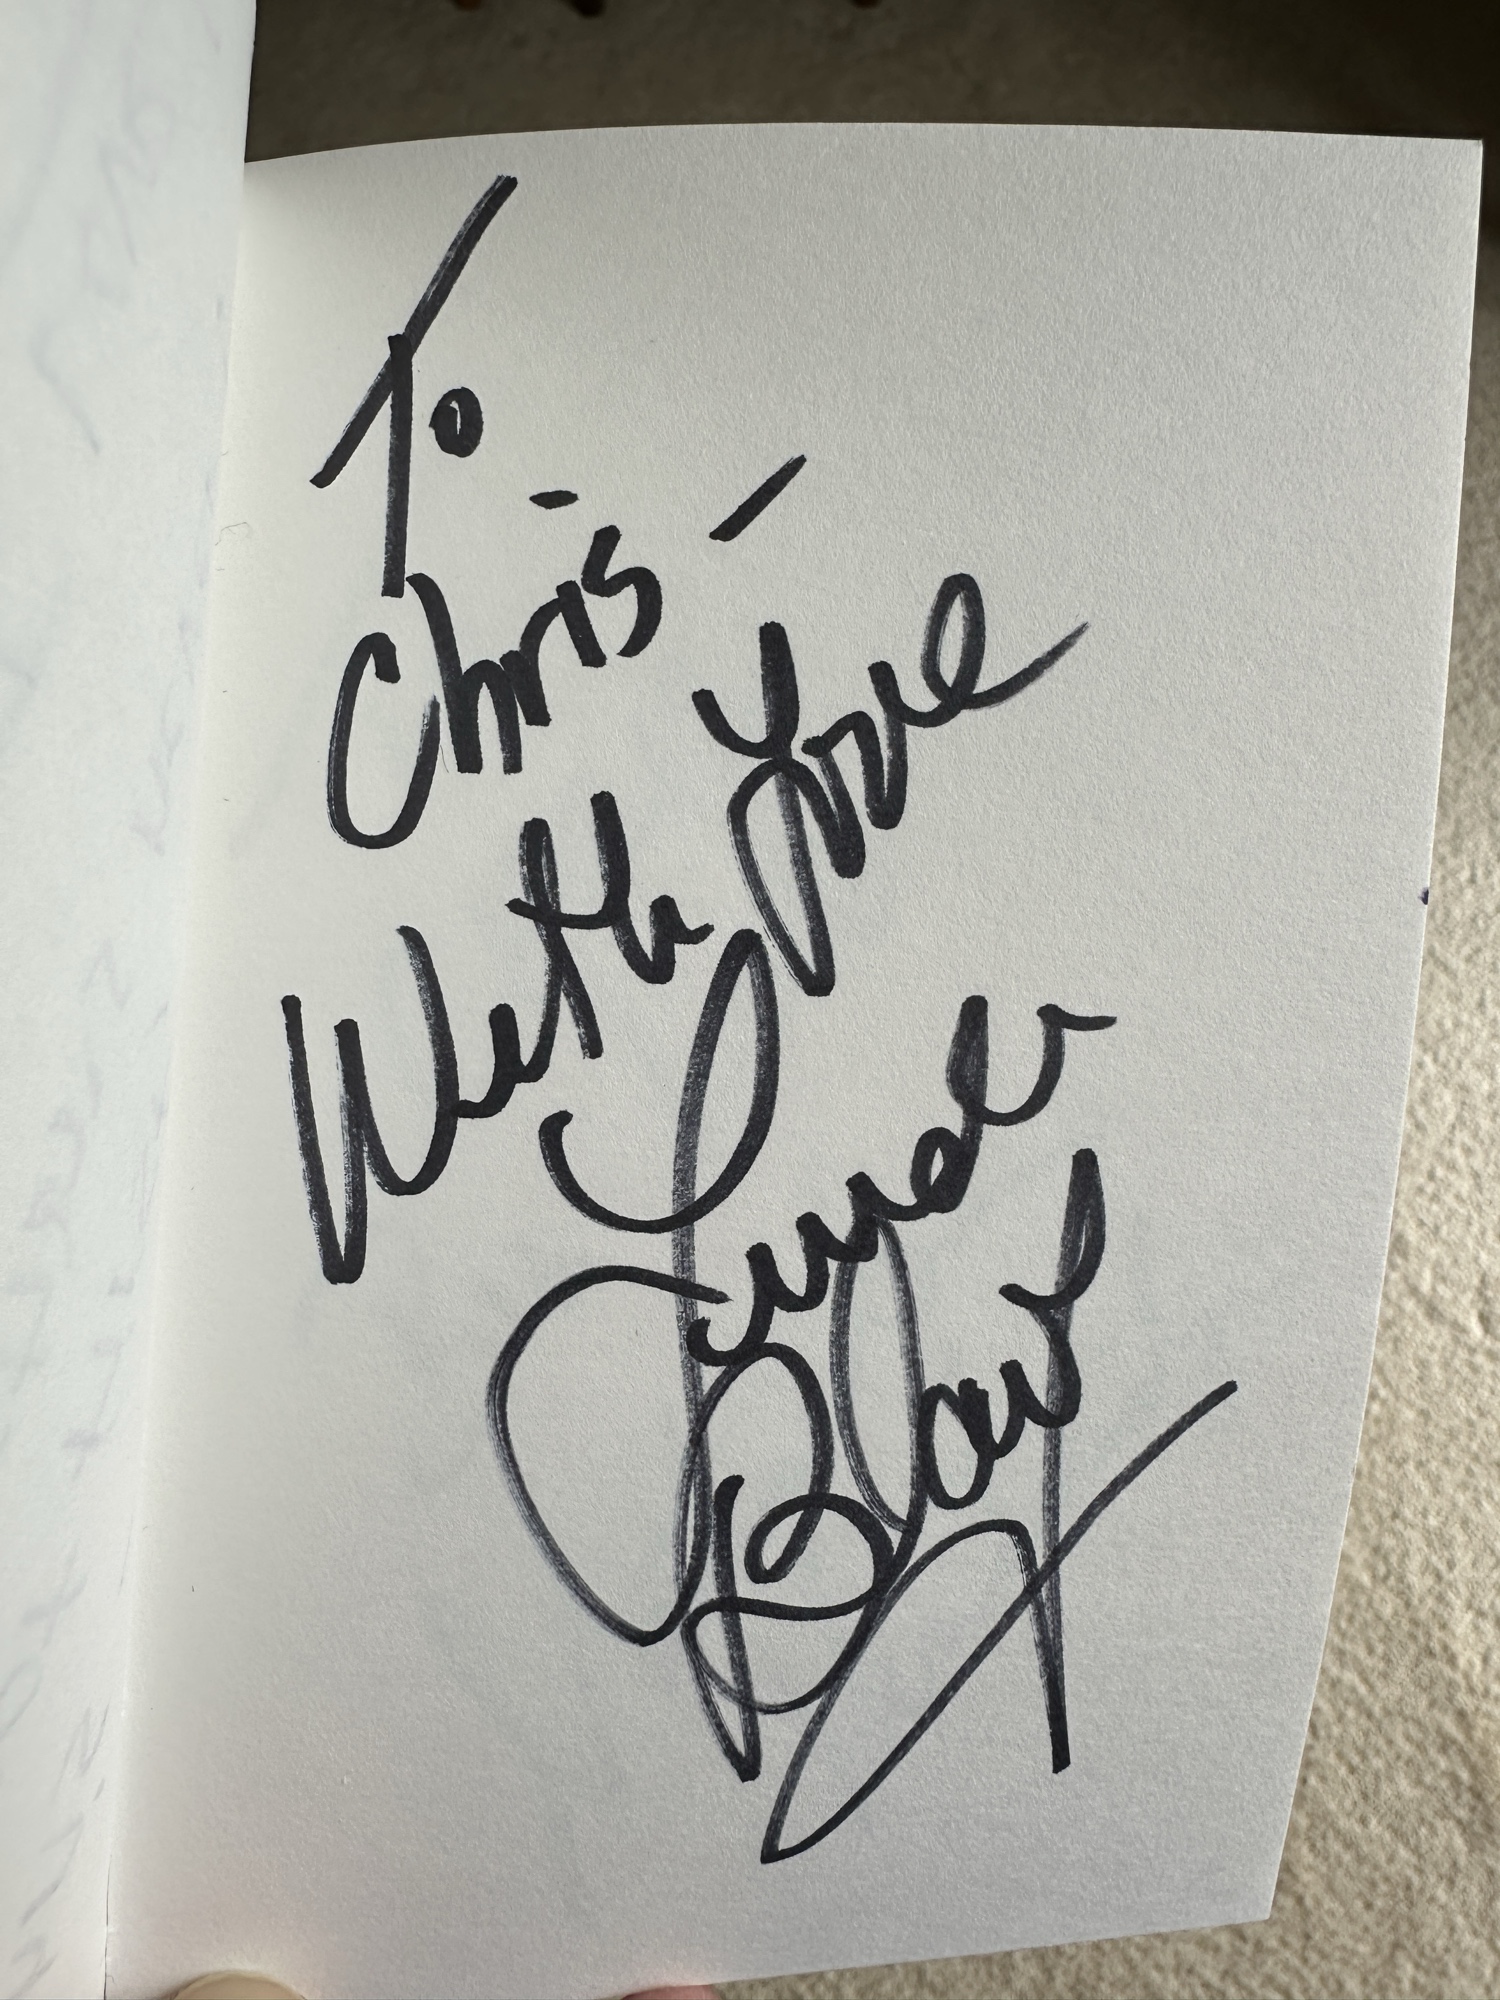 To
Chris -
With Love
Linda
Blair